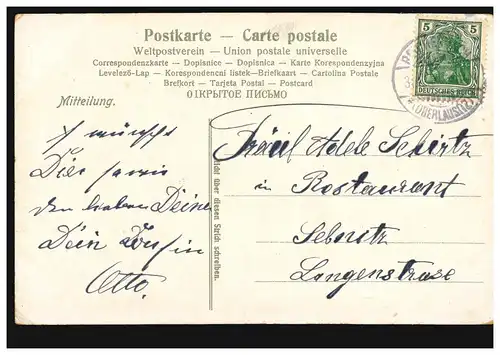 Postkarte – Carte postale
Weltpostverein – Union postale universelle
Correspondenzkarte – Dopisnice – Dopisnica – Karte Korespondenzyjna
Levelező-Lap – Korespondencni listek – Briefkaart – Cartolina Postale
Brefkort – Tarjeta Postal – Postcard
ОТКРЫТОЕ ПИСЬМО
5 5
DEUTSCHES REICH
(OBERLAUSITZ)
Mitteilung.
wünscht
Dir sowie
den lieben Deinen
Dein Cousin
Otto.
Nicht über diesen Strich schreiben.
Fräul Adele Schirtz
in Restaurant
Sebnitz
Langenstrase